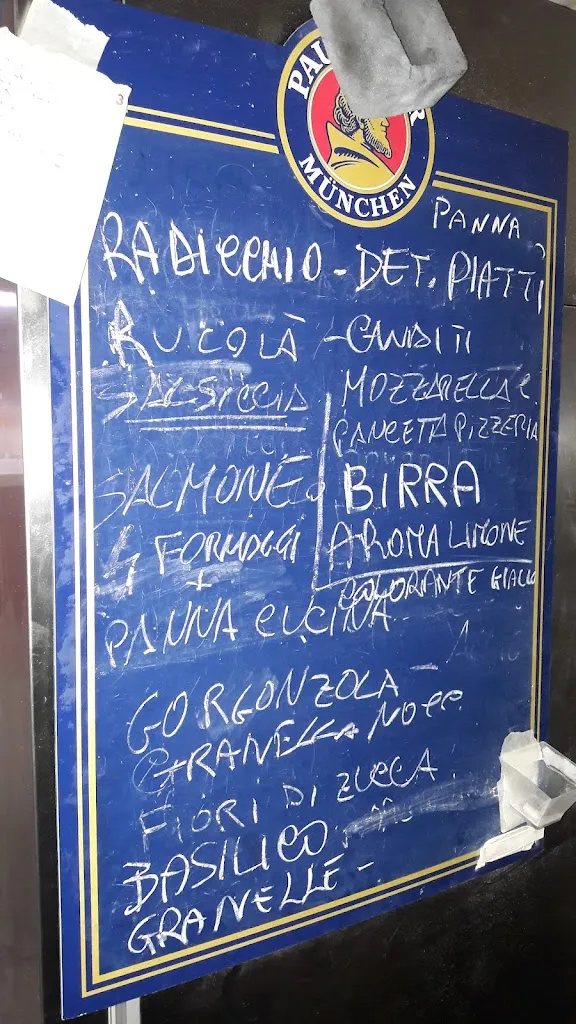 MÜNCHEN
PANNA
RADICCHIO - DET. PIATTI
RUCOLA - CANDITI
SALSICCIA
MOZZARELLA
PANCETA PIZZERIA
SALMONE
BIRRA
4 FORMAGGI
AROMA LIMONE
+
COLORANTE GIALLO
PANNA CUCINA
GORGONZOLA -
GRANELLA NOCC
FIORI DI ZUCCA
BASILICO
GRANELLE -